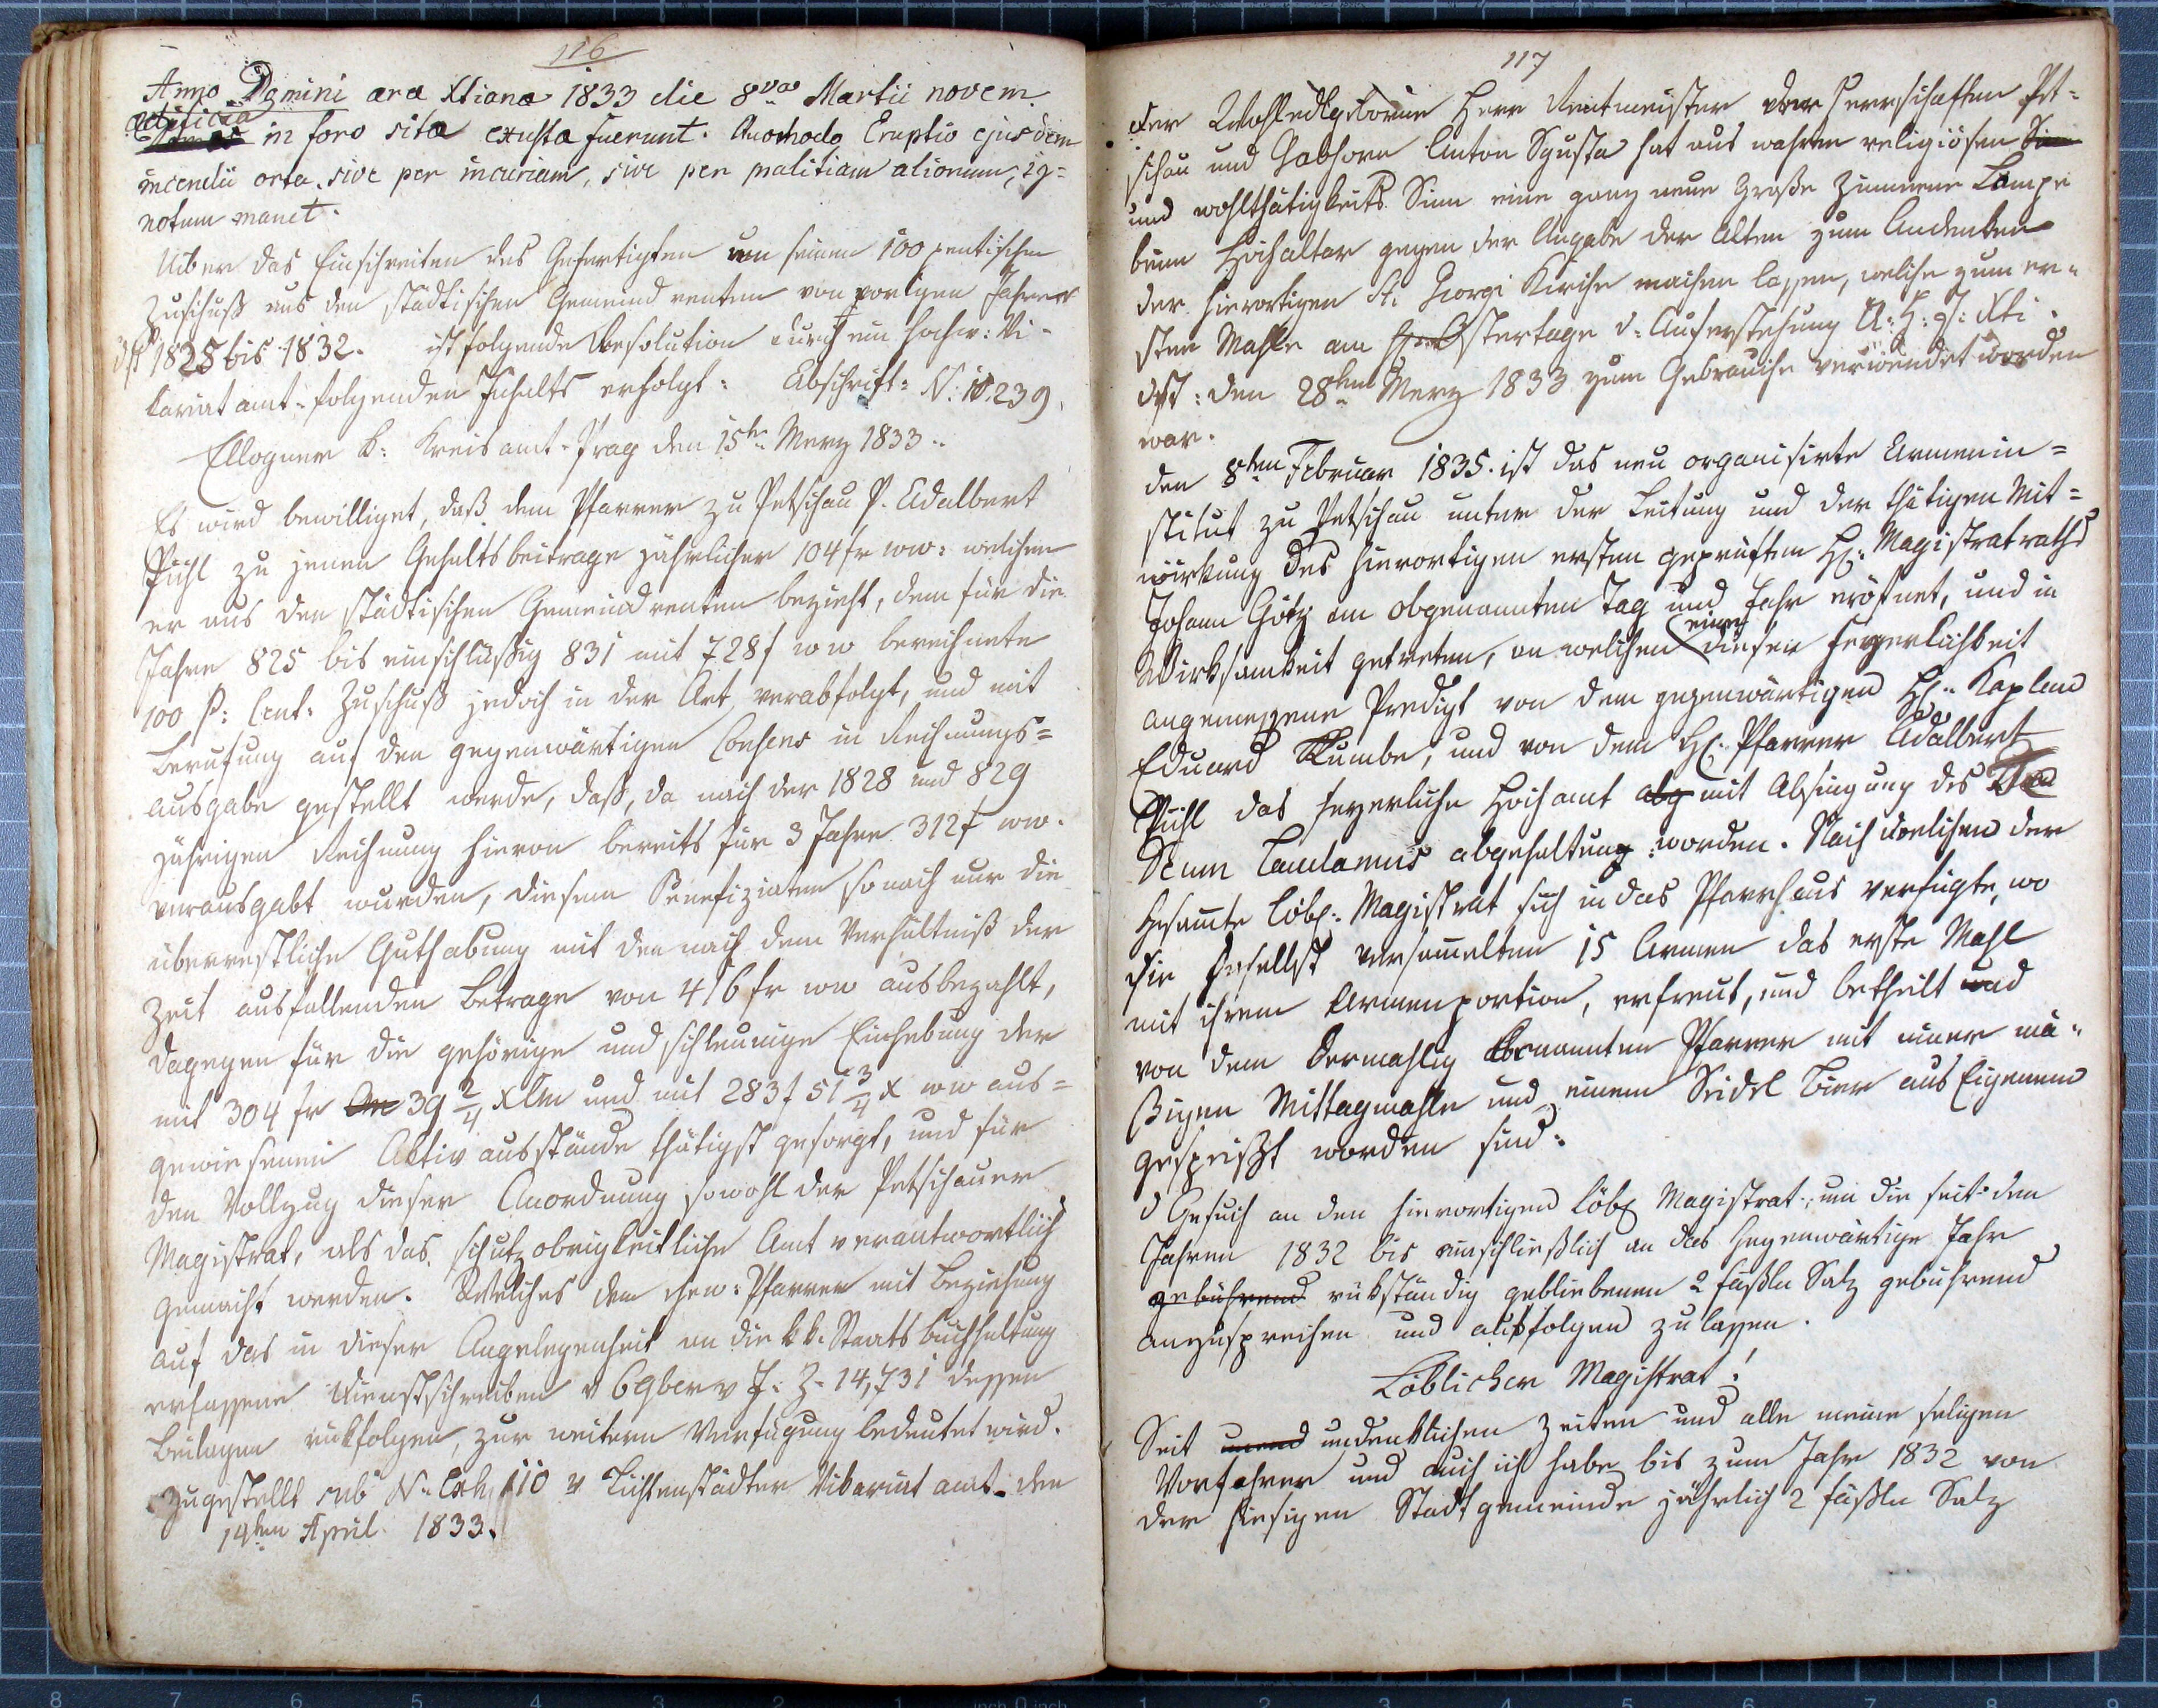 116
Anno Domini æra Xtiana 1833 die 8va Martii novem
ædificia
in foro sita exusta fuerunt. Quomodo Eruptio ejusdem
incendii orta, sive per incuriam, sive per malitiam aliorum, ig=
notum manet.
Uiber das Einschreiten des Gefertigten um seinen 100 pentischen
Zuschuß aus den städtischen Gemeind renten von vorigen Jahren
1825 bis 1832. ist folgende Resolution durch ein hochw: Vi-
kariat amt folgenden Inhalts erfolgt: Abschrift: N. 10.239.
Ellogner k: Kreisamt Prag den 15te Merz 1833.
Es wird bewilliget, daß dem Pfarrer zu Petschau P. Adalbert
Pühl zu jenem Gehaltsbeitrage jährlicher 104 fr ww: welchen
er aus den städtischen Gemeindrenten bezieht, dem für die
Jahre 825 bis einschlüßig 831 mit 728 f ww berechnete
100 P: Cent: Zuschuß jedoch in der Art verabfolgt, und mit
Berufung auf den gegenwärtigen Consens in Rechnungs=
ausgabe gestellt werde, daß, da nach der 1828 und 829
jährigen Rechnung hievon bereits für 3 Jahre 312 f ww.
verausgabt wurden, diesem Benefiziaten sonach nur die
überrestliche Guthabung mit den nach dem Verhältniß der
Zeit ausfallenden Betrage von 416 fr ww ausbezahlt,
dagegen für die gehörige und schleunige Einhebung der
mit 304 fr 39 2/4 x Cm und mit 283 f 51 3/4 x ww aus=
gewiesenen Aktiv ausstände thätigst gesorgt, und für
den Vollzug dieser Anordnung sowohl der Petschauer
Magistrat, als das schutzobrigkeitliche Amt verantwortlich
gemacht werden. Welches dem ehrw: Pfarrer mit Beziehung
auf das in dieser Angelegenheit an die k.k. Staatsbuchhaltung
erlassene Dienstschreiben v 6 9ber v J: Z. 14,731 dessen
Beilagen rükfolgen, zur weitern Verfügung bedeutet wird.
Zugestellt sub N. Exh. 110 v Lichtenstädter Vikariat amt den
14ten April 1833.
117
Der Wohledlgeborne Herr Rentmeister der Herrschaften Pet=
schau und Gabhorn Anton Sgusta hat aus wahren religiösen
und wohlthätigkeits Sinn eine ganz neue Große Zinnerne Lampe
beim Hochaltar gegen der Angabe der Alten zum Andenken
der hierortigen St. Georgi Kirche machen lassen, welche zum er=
sten Mahle am Ostertage d: Auferstehung U: H: J: Xti.
dst: den 28ten Merz 1833 zum Gebrauche verwendet worden
war.
den 8ten Februar 1835. ist das neu organisirte Armenin=
stitut zu Petschau unter der Leitung und der thätigen Mit=
wirkung des hierortigen ersten geprüften H: Magistratraths
Johann Götz am obgenannten Tag und Jahr eröfnet, und in
Wirksamkeit getreten, an welchen eine dieser Feyerlichkeit
angemessene Predigt von dem gegenwärtigen H: Kaplan
Eduard Kumbe, und von dem H: Pfarrer Adalbert
Pühl das feyerliche Hochamt abg mit Absingung des
Deum Laudamus abgehaltung worden. Nach welchen der
Gesam̅te löbl: Magistrat sich in das Pfarrhaus verfügte, wo
die daselbst versam̅elten 15 Armen das erste Mahl
mit ihrem Armenportion, erfreut, und betheilt und
von dem dermahlig Pfarrer mit einer mä=
ßigen Mittagmahle und einem Seidel Bier aus Eigenem
gespeißt worden sind.
Gesuch an den hierortigen löbl Magistrat, um die seit den
Jahren 1832 bis einschließlich an das Gegenwärtige Jahr
gebührend rükständig gebliebenen 2 Fäßln Salz gebührend
anzusprechen und ausfolgen zu lassen.
Löblicher Magistrat!
Seit undenklichen Zeiten und alle meine seligen
Vorfahrer und auch ich habe bis zum Jahr 1832 von
der hiesigen Stadtgemeinde jährlich 2 Fäßln Salz